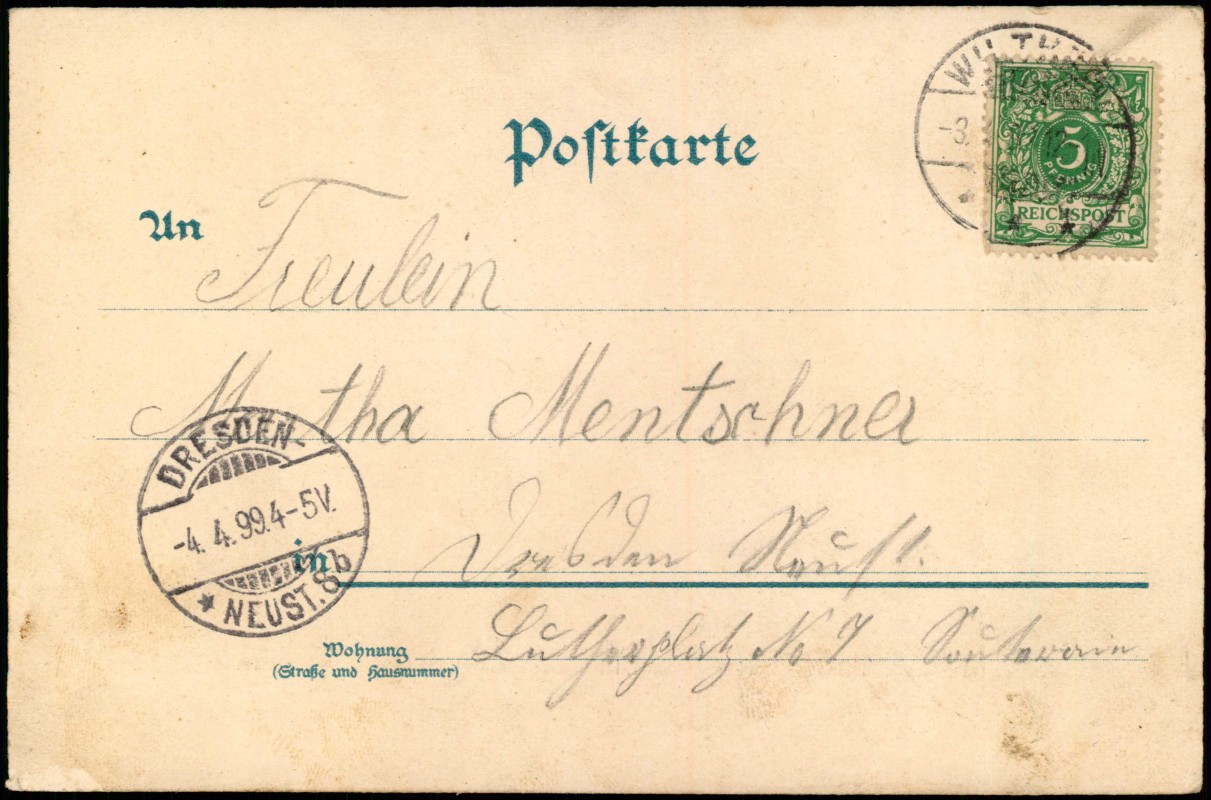 WILTHEN
Postkarte
5
PFENNIG
REICHSPOST
An Freulein
Martha Mentschner
DRESDEN-
-4. 4. 99. 4-5V.
* NEUST. 8b
in Dresden Neust.
Wohnung Lutherplatz No 7 Souterain
(Straße und Hausnummer)